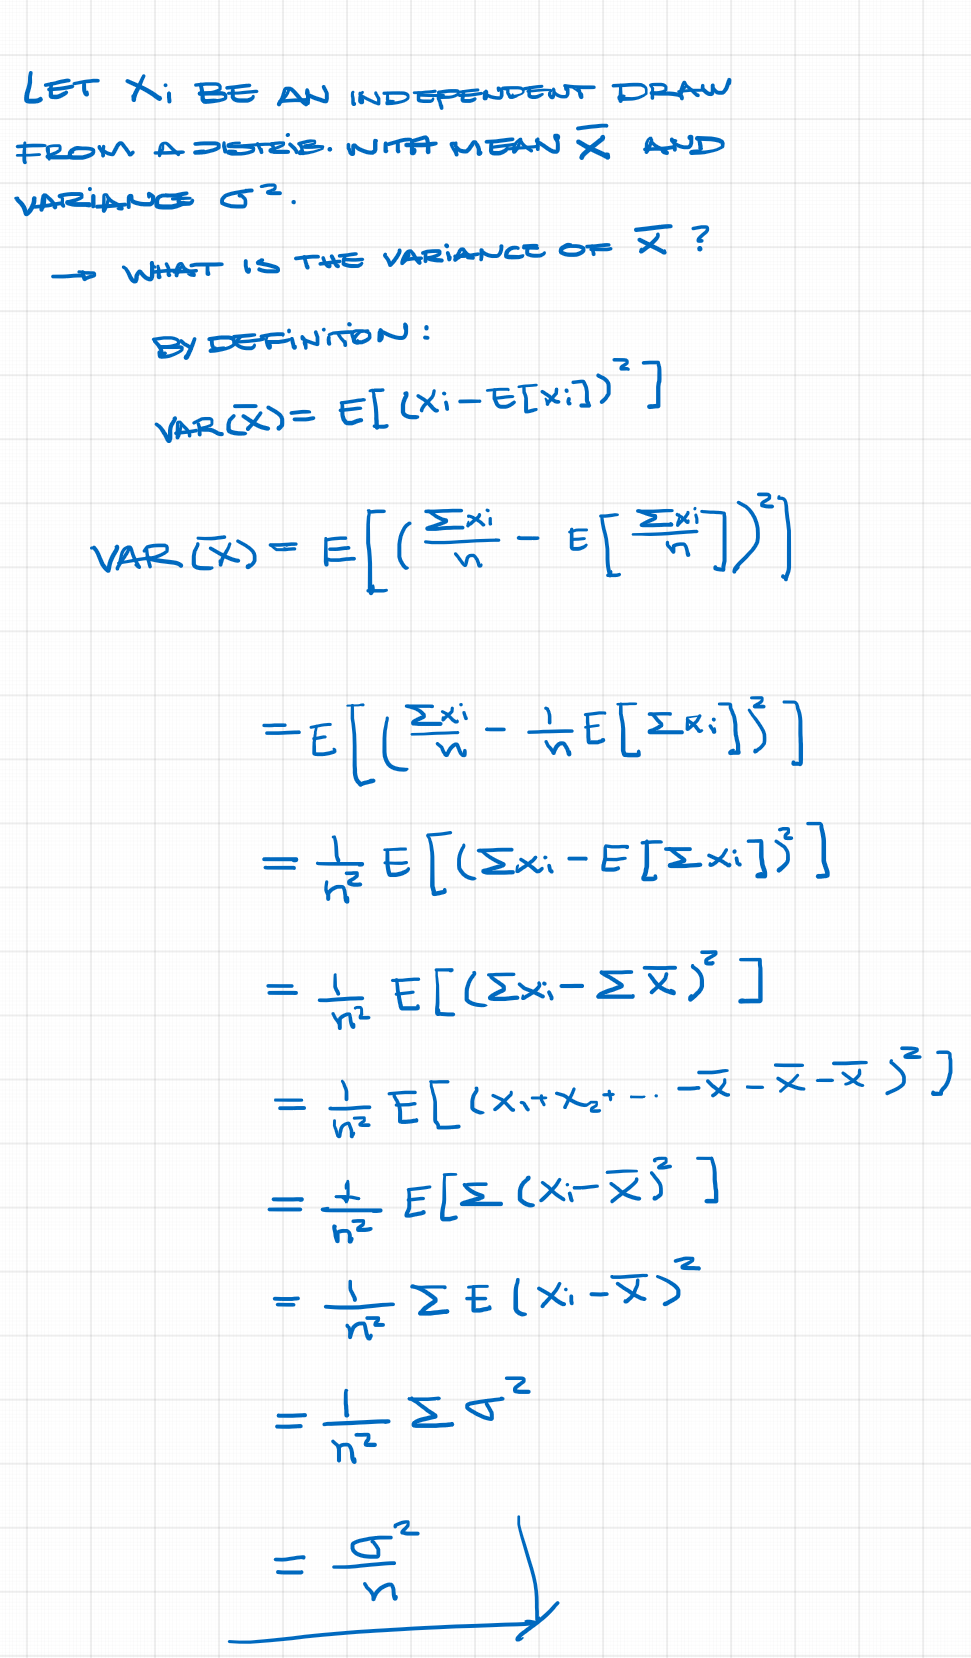 LET Xi BE AN INDEPENDENT DRAW
FROM A DISTRIB. WITH MEAN X̅ AND
VARIANCE σ².
→ WHAT IS THE VARIANCE OF X̅ ?
BY DEFINITION:
VAR(X̅) = E[(Xi - E[Xi])²]
VAR(X̅) = E[(Σxi/n - E[Σxi/n])²]
= E[(Σxi/n - 1/n E[Σxi])²]
= 1/n² E[(Σxi - E[Σxi])²]
= 1/n² E[(Σxi - Σ X̅)²]
= 1/n² E[(X₁ + X₂ + ... - X̅ - X̅ - X̅)²]
= 1/n² E[Σ (Xi - X̅)²]
= 1/n² Σ E (Xi - X̅)²
= 1/n² Σ σ²
= σ²/n